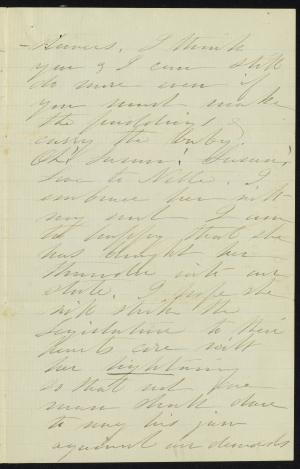 powers. I think
you & I can still
do more even if
you must make
the puddings &
carry the baby.
Oh! Susan! Susan!
love to Nette. I
embrace her with
my soul. I am
so happy that she
has brought her
thunder into our
state. I hope she
will strike the
Legislature to their
hearts core with
her lightning
so that not one
man shall dare
to wag his jaw
against our demands